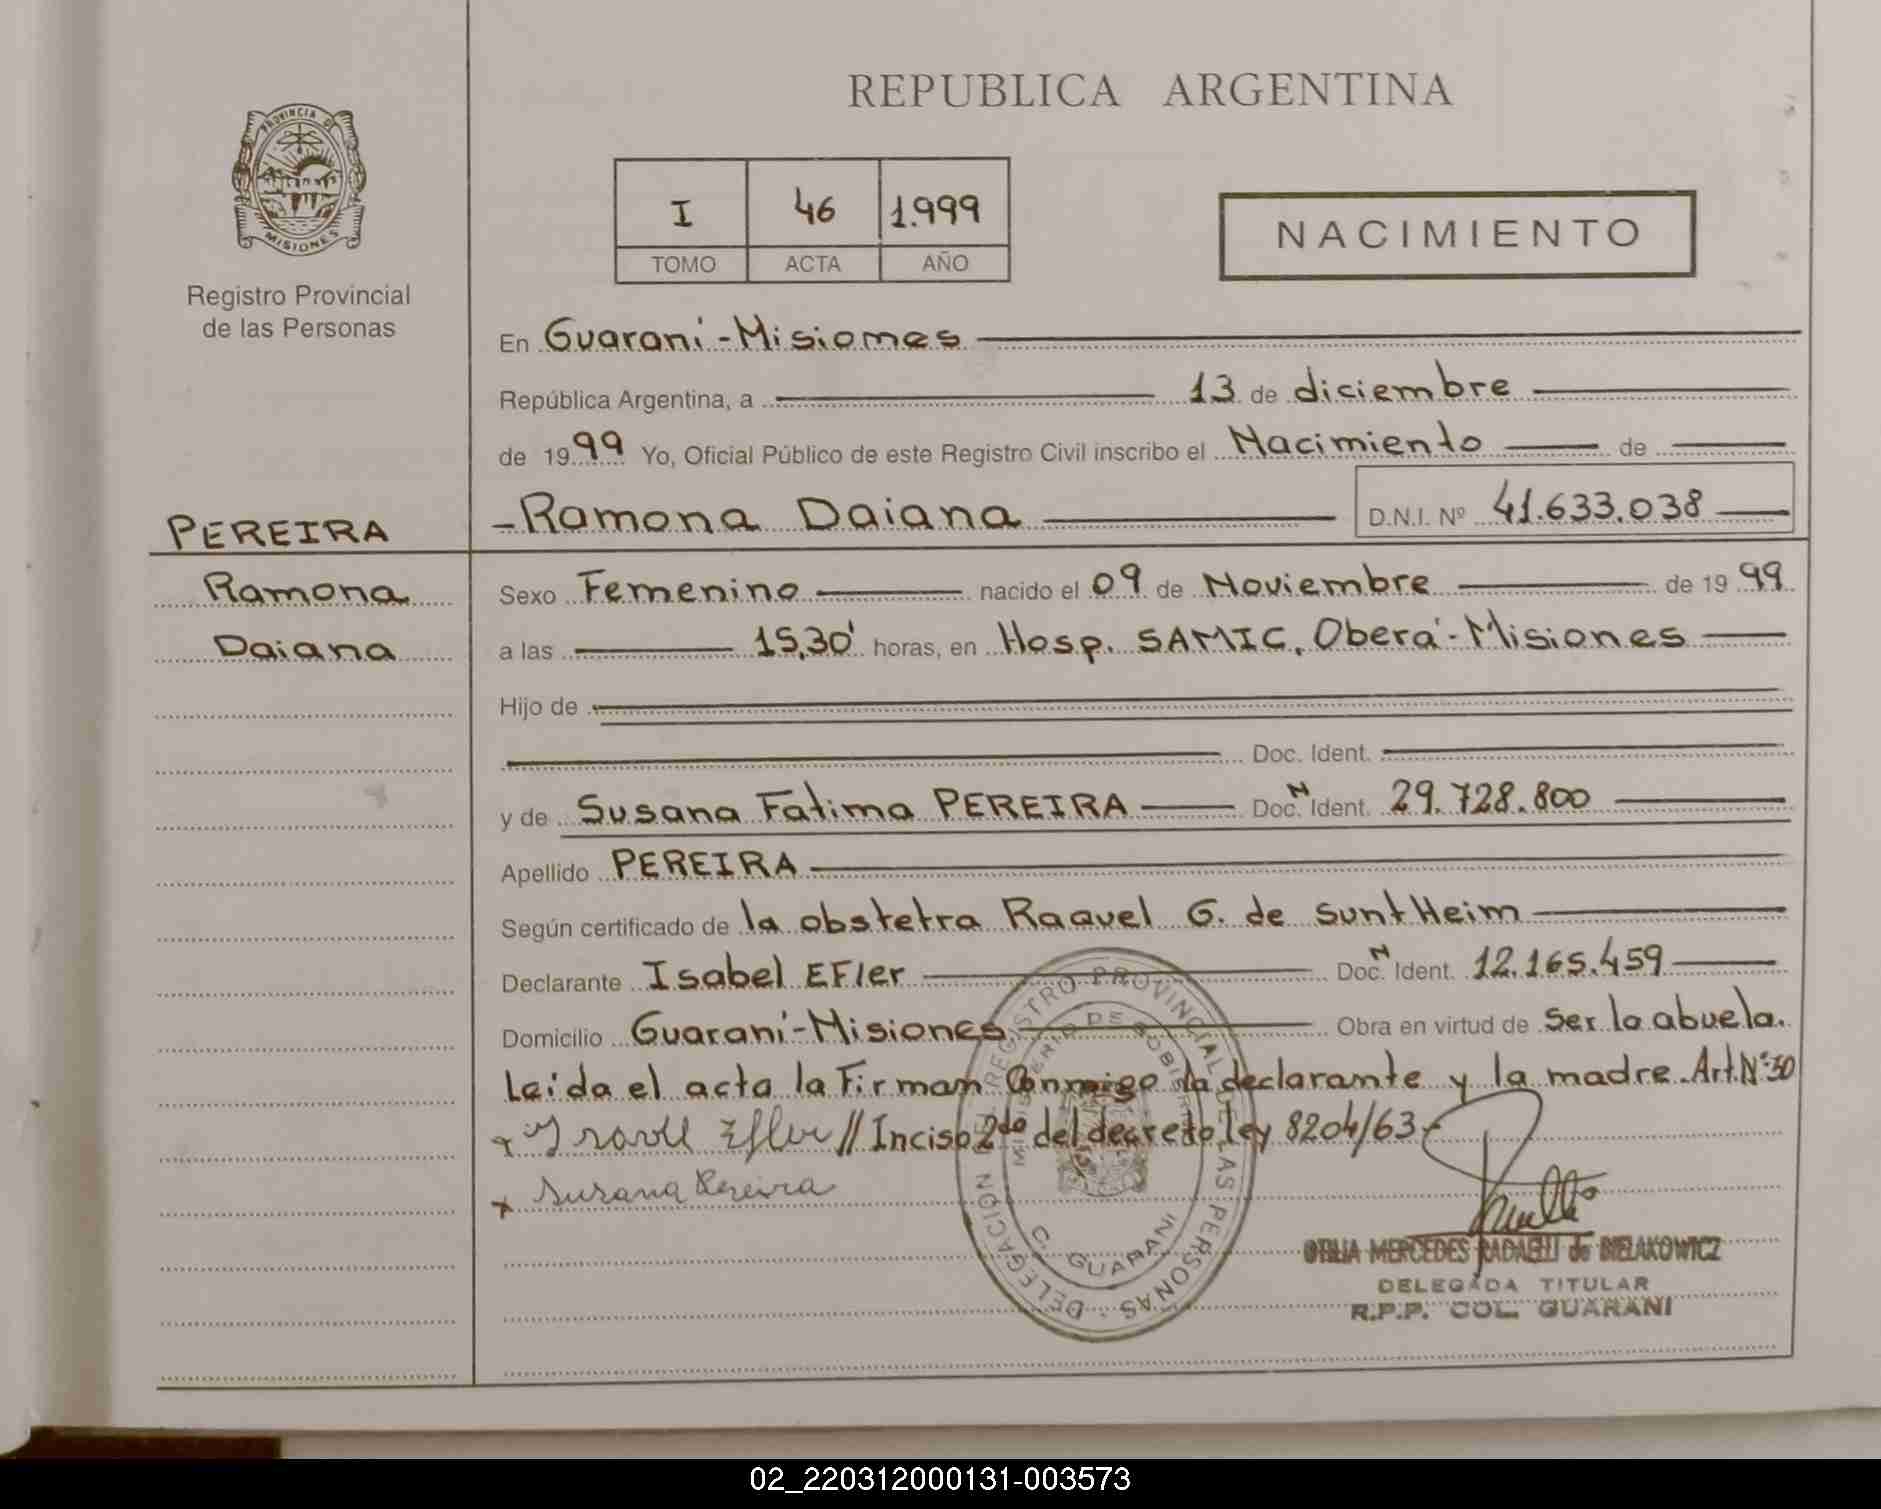 REPUBLICA ARGENTINA
PROVINCIA DE
MISIONES
Registro Provincial
de las Personas
I 46 1.999
TOMO ACTA AÑO
NACIMIENTO
En Guaraní-Misiones
República Argentina, a 13 de diciembre
de 1999 Yo, Oficial Público de este Registro Civil inscribo el Nacimiento de
PEREIRA
Ramona
Daiana
-Ramona Daiana D.N.I. Nº 41.633.038
Sexo Femenino nacido el 09 de Noviembre de 1999
a las 15,30' horas, en Hosp. SAMIC, Oberá-Misiones
Hijo de
Doc. Ident.
y de Susana Fatima PEREIRA Doc. N Ident. 29.728.800
Apellido PEREIRA
Según certificado de la obstetra Raquel G. de SuntHeim
Declarante Isabel EFler Doc. N Ident. 12.165.459
Domicilio Guaraní-Misiones Obra en virtud de Ser la abuela.
Leída el acta la Firman Conmigo la declarante y la madre. Art. Nº 30
// Inciso 2do del decreto ley 8204/63-
Susana Pereira
DELEGACION DEL REGISTRO PROVINCIAL DE LAS PERSONAS
MINISTERIO DE GOBIERNO
C. GUARANI
OTILIA MERCEDES RADAELLI de BIELAKOWICZ
DELEGADA TITULAR
R.P.P. COL. GUARANI
02_220312000131-003573